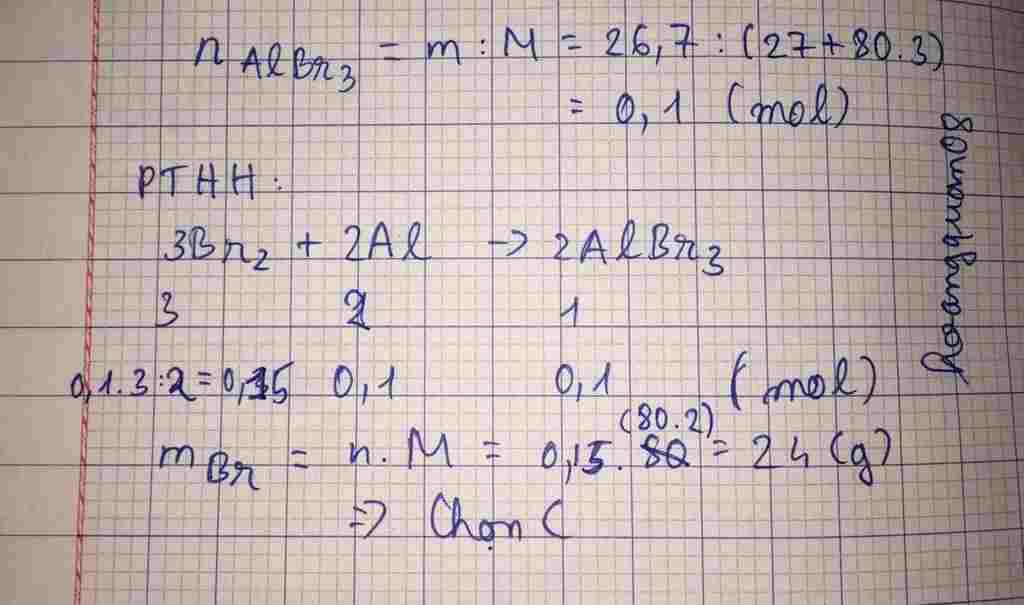 n AlBr3 = m : M = 26,7 : (27+80.3)
= 0,1 (mol)
PTHH:
3Br2 + 2Al -> 2AlBr3
3 2 1
0,1.3:2=0,15 0,1 0,1 (mol)
(80.2)
mBr = n.M = 0,15. = 24 (g)
=> Chọn C
hoangquan08